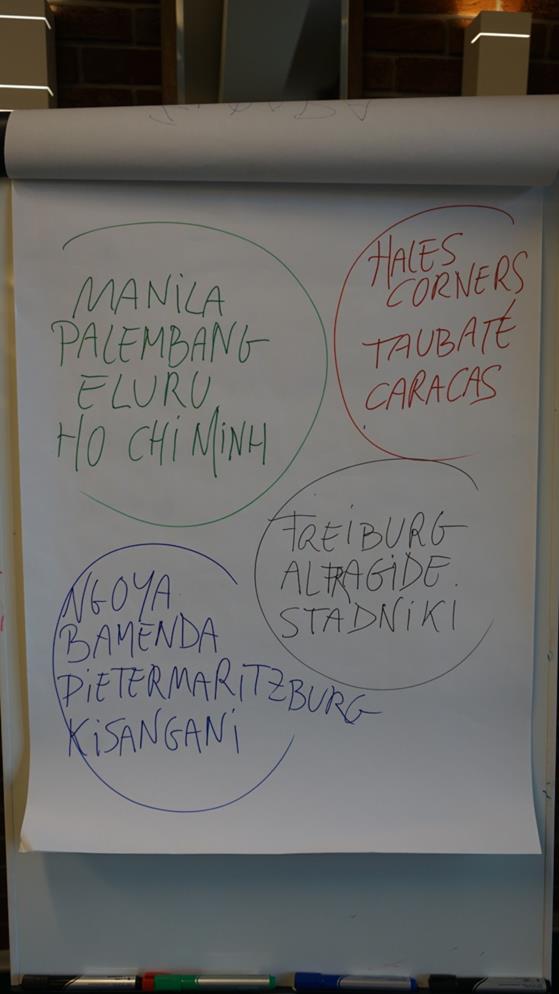 MANILA
PALEMBANG
ELURU
HO CHI MINH
HALES
CORNERS
TAUBATÉ
CARACAS
FREIBURG
ALFRAGIDE
STADNIKI
NGOYA
BAMENDA
PIETERMARITZBURG
KISANGANI